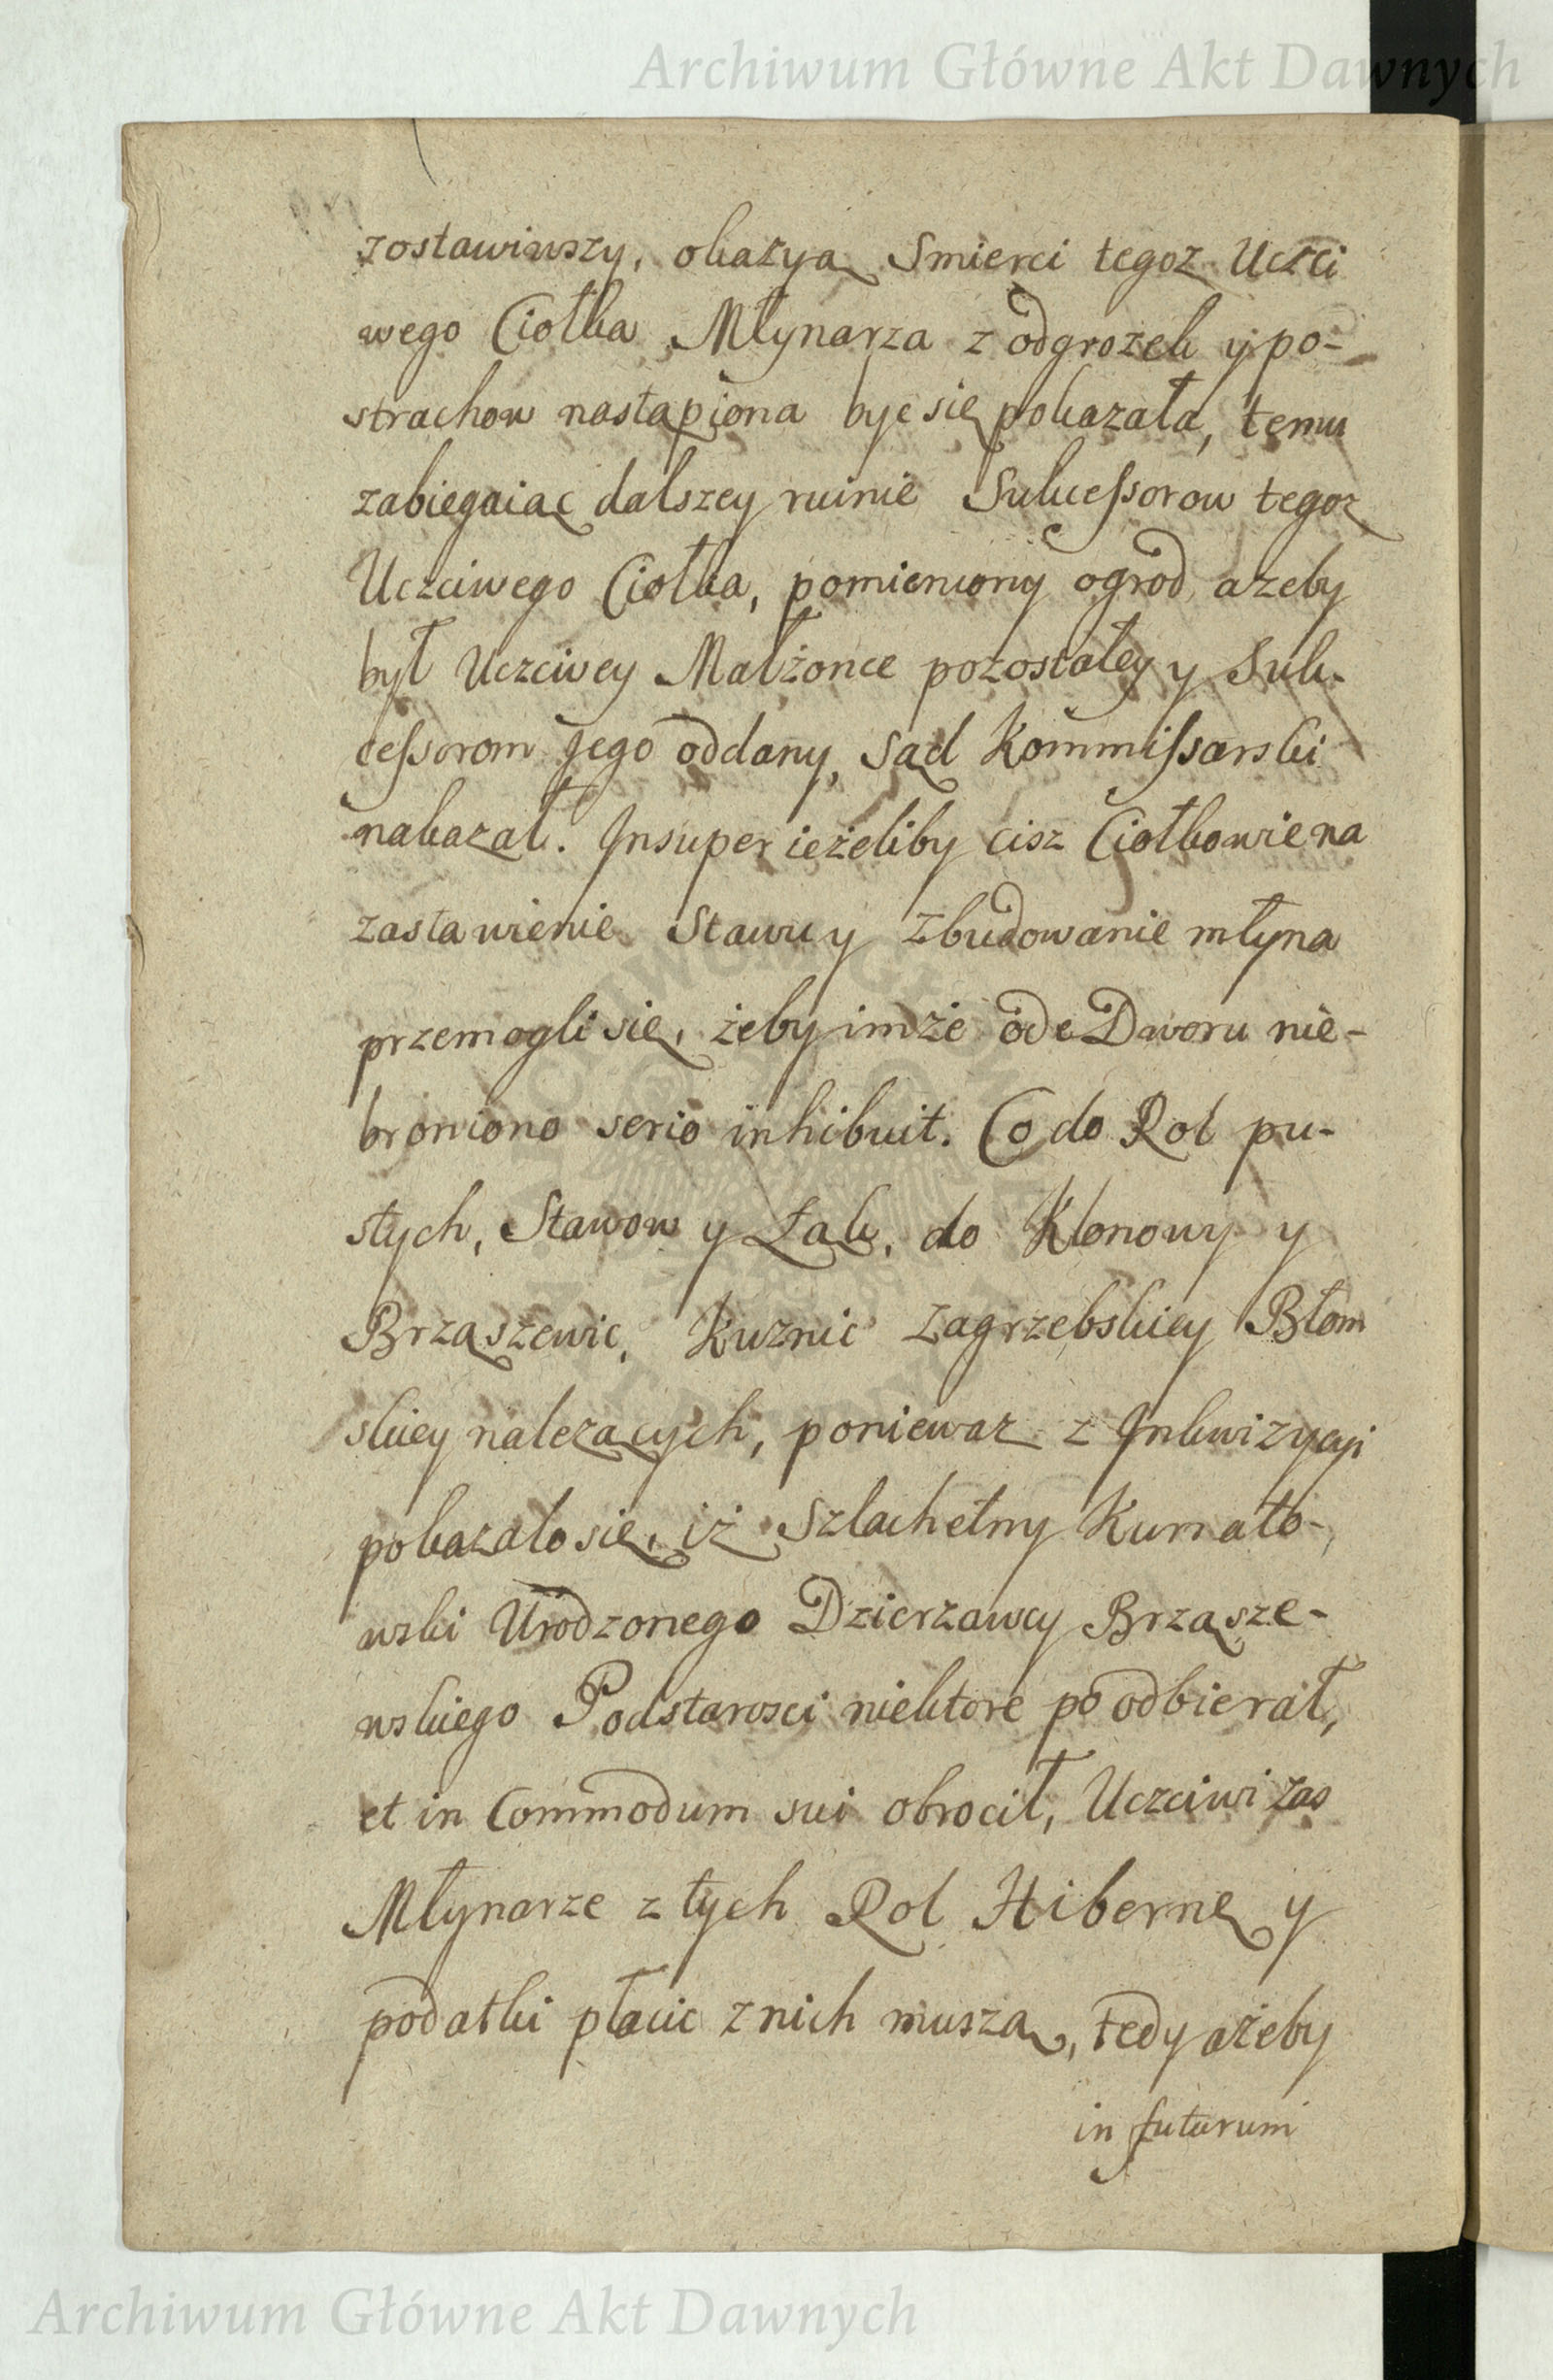 Archiwum Główne Akt Dawnych
zostawiwszy, okazya Smierci tegoz Uczci
wego Ciołka Młynarza z odgrozek y po-
strachow nastąpiona byc się pokazała, temu
zabiegaiąc dalszey ruinie Sukcessorow tegoz
Uczciwego Ciołka, pomieniony ogrod azeby
był Uczciwey Małżonce pozostałey y Suk-
cessorom Jego oddany, Sąd Kommissarski
nakazał. Insuper ieżeliby cisz Ciołkowie na
zastawienie Stawu y Zbudowanie młyna
przemogli się, żeby imże ode Dworu nie-
broniono serio inhibuit. Co do Rol pu-
stych, Stawow y Łąk, do Klonowy y
Brząszewic, Kuznic Zagrzebskiey Błom
skiey nalezących, poniewaz z Inkwizycyi
pokazało się, iż Szlachetny Kurnato-
wski Urodzonego Dzierzawcy Brząsze-
wskiego Podstarosci niektore poodbierał,
et in Commodum sui obrocił, Uczciwi zas
Młynarze z tych Rol Hibernę y
podatki płacic z nich muszą, tedy ażeby
in futurum
Archiwum Główne Akt Dawnych